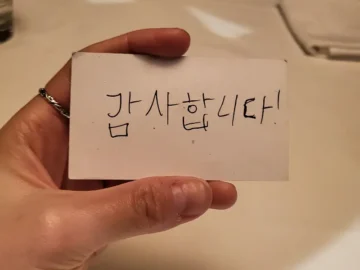 감사합니다!